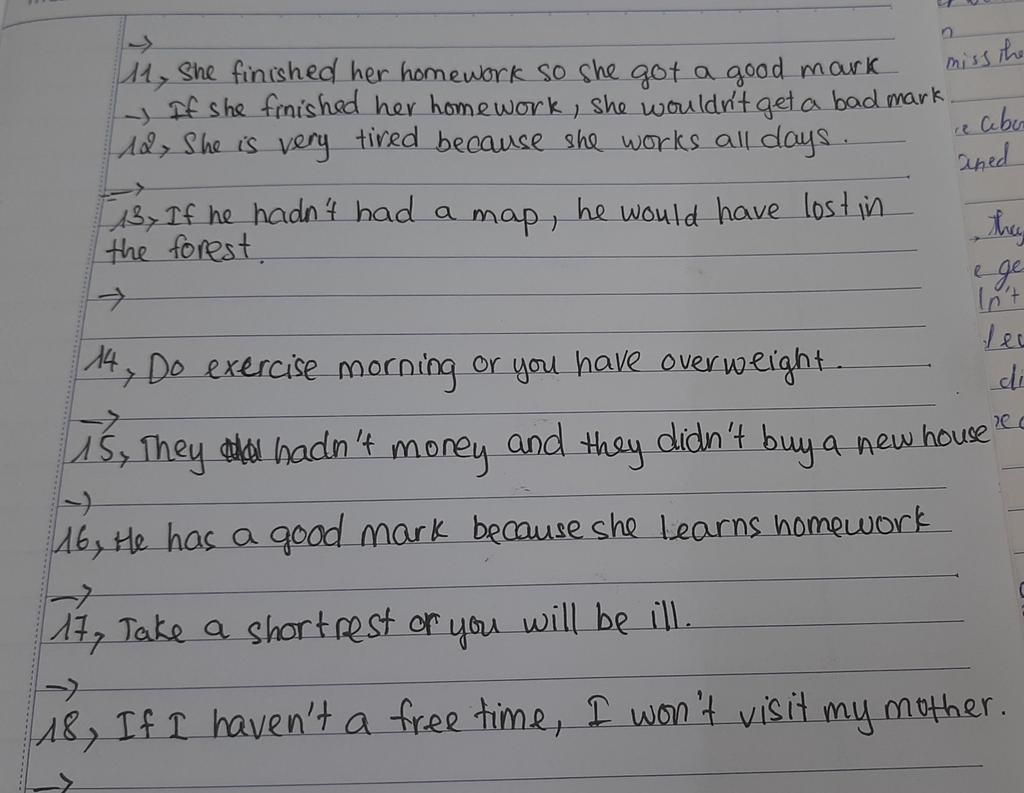 →
11, She finished her homework so she got a good mark
→ If she finished her homework, she wouldn't get a bad mark
12, She is very tired because she works all days.
→
13, If he hadn't had a map, he would have lost in
the forest.
→
14, Do exercise morning or you have overweight.
→
15, They hadn't money and they didn't buy a new house
→
16, He has a good mark because she learns homework
→
17, Take a short rest or you will be ill.
→
18, If I haven't a free time, I won't visit my mother.
→
miss the
, they